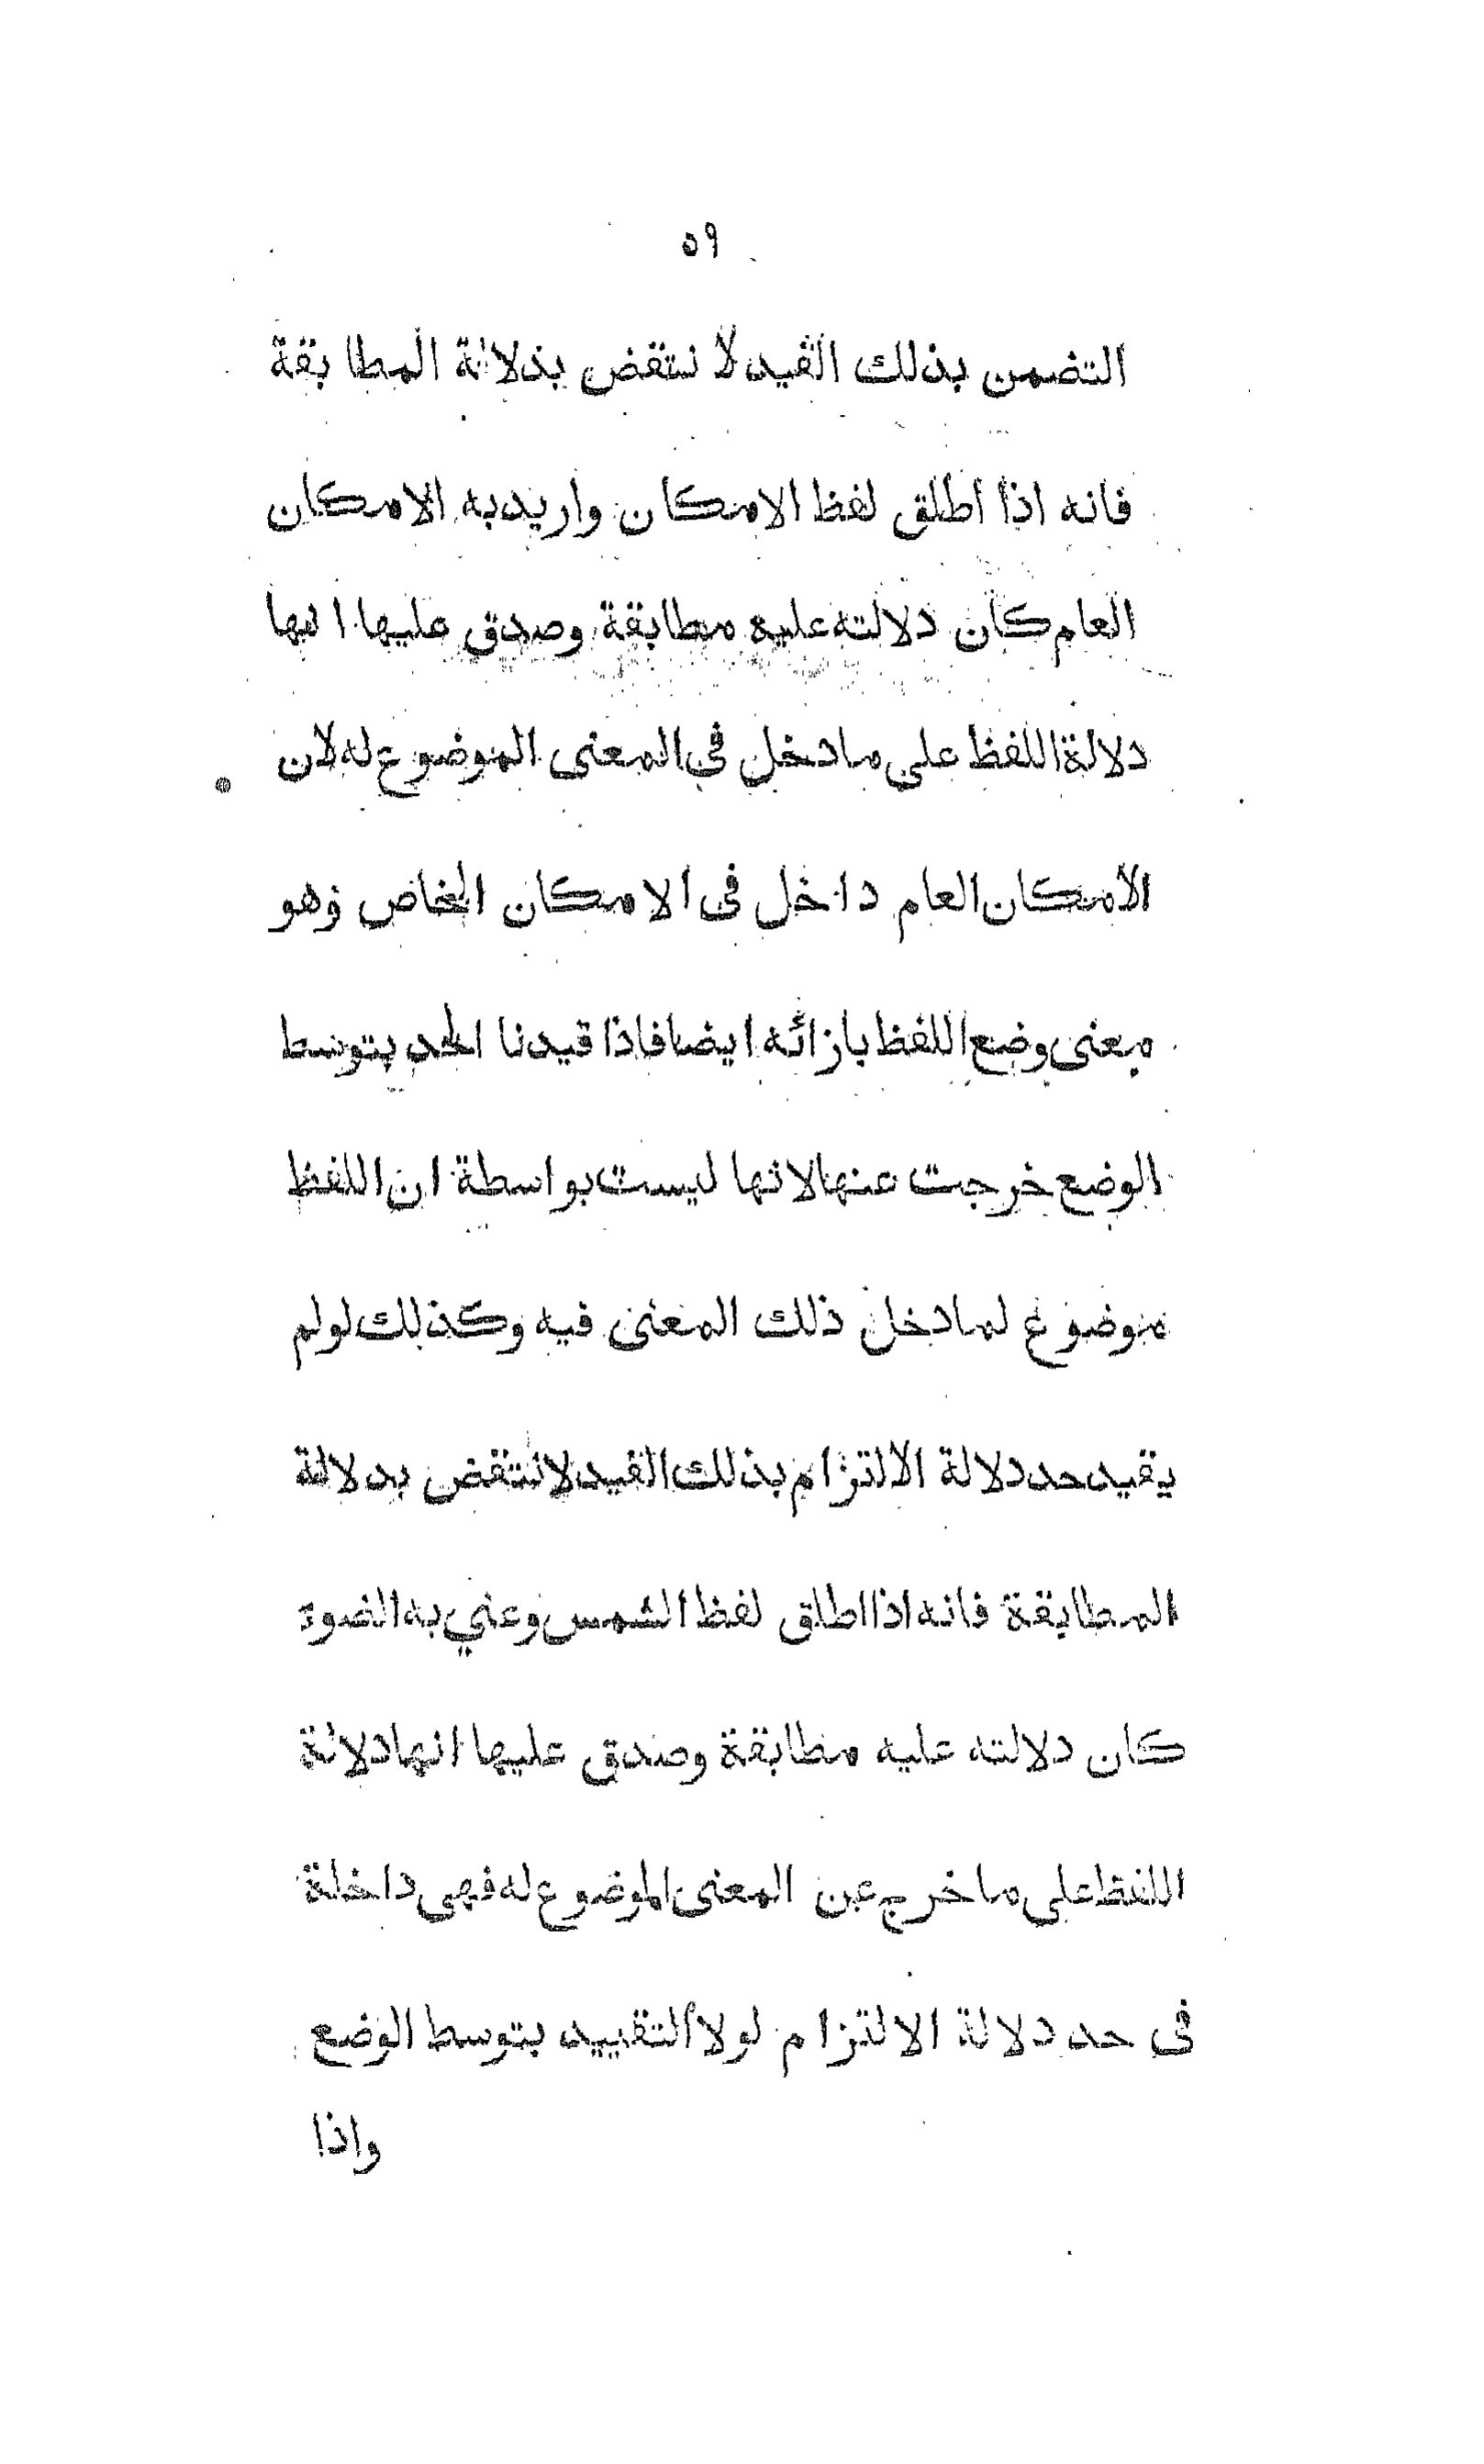 ٥٩
التضمن بذلك القيد لانتقض بدلالة المطابقة
فانه اذا اطلق لفظ الامكان واريد به الامكان
العام كان دلالته عليه مطابقة وصدق عليها انها
دلالة اللفظ على ما دخل في المعنى الموضوع له لان
الامكان العام داخل فى الامكان الخاص وهو
معنى وضع اللفظ بازائه ايضا فاذا قيدنا الحد بتوسط
الوضع خرجت عنها لانها ليست بواسطة ان اللفظ
موضوع لما دخل ذلك المعنى فيه وكذلك لو لم
يقيد حد دلالة الالتزام بذلك القيد لانتقض بدلالة
المطابقة فانه اذا اطلق لفظ الشمس وعني به الضوء
كان دلالته عليه مطابقة وصدق عليها انها دلالة
اللفظ على ما خرج عن المعنى الموضوع له فهى داخلة
فى حد دلالة الالتزام لولا التقييد بتوسط الوضع
واذا